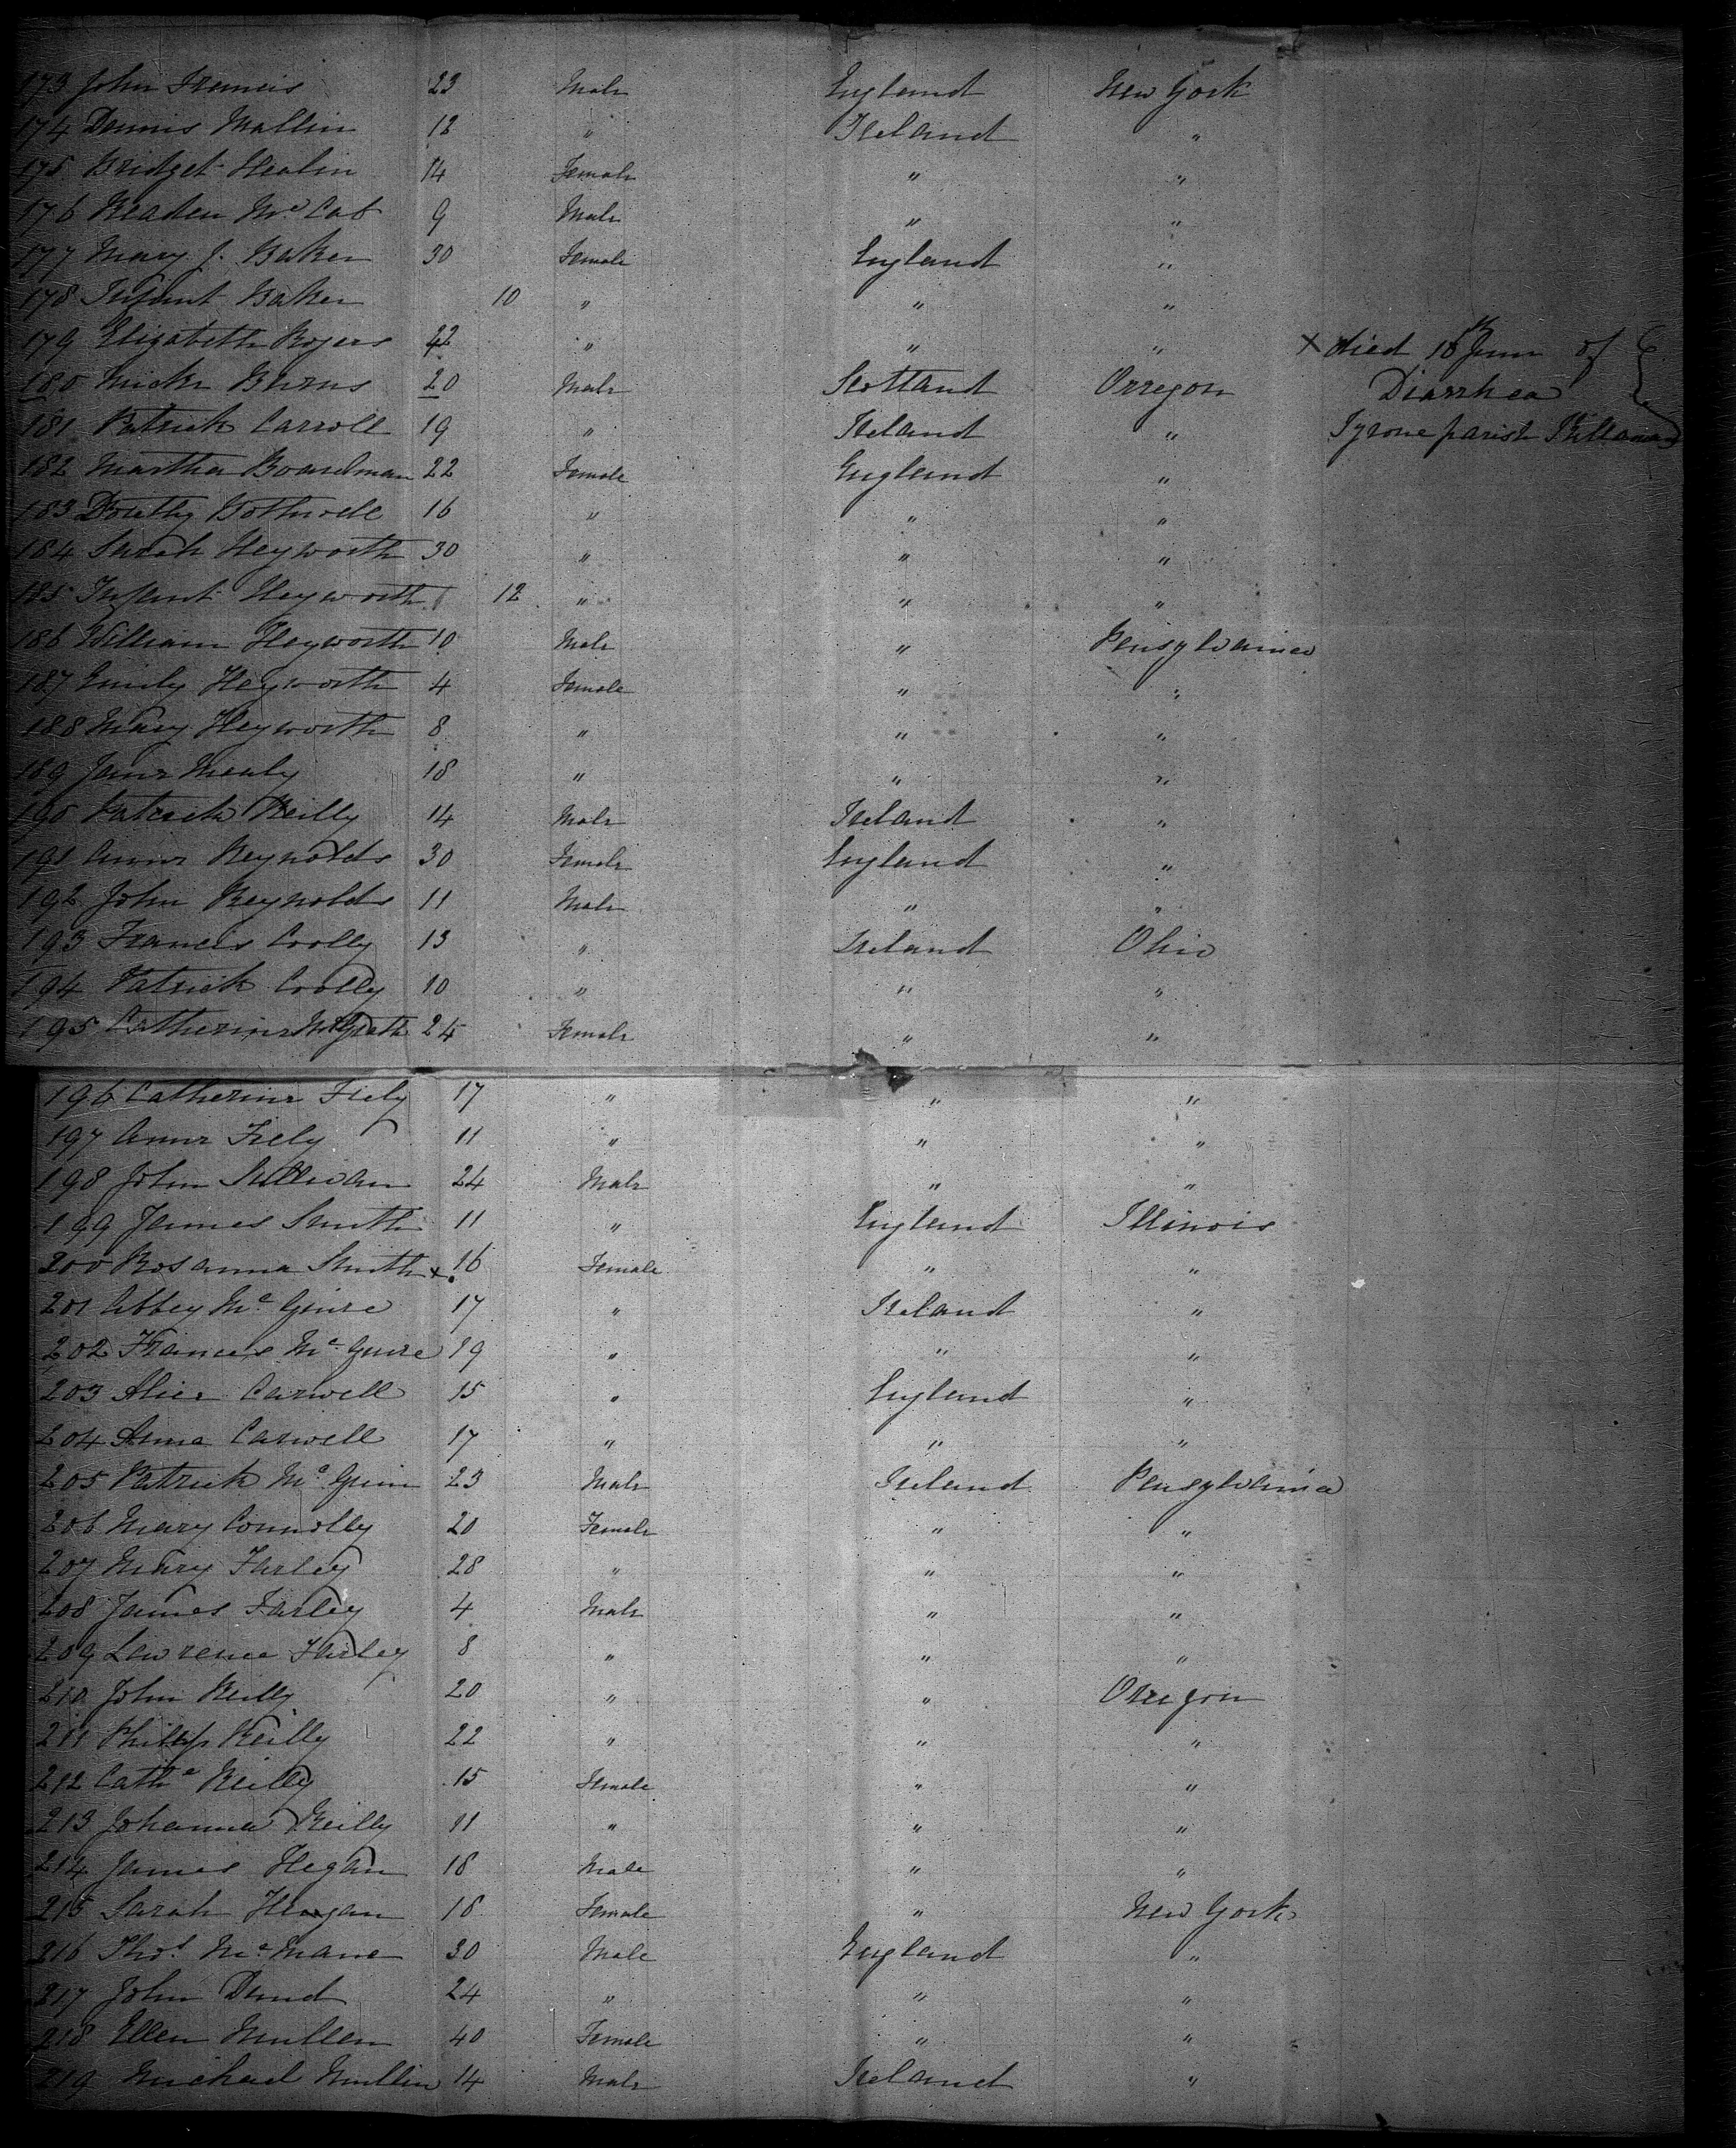 173 John Francis 23 Male England New York
174 Dennis Mallin 12 " Ireland "
175 Bridget Healin 14 Female " "
176 Readen Mc Cab 9 Male " "
177 Mary J. Baker 30 Female England "
178 Infant Baker 10 " " "
179 Elizabeth Rogers 42 " " " X died 18th June of
180 Micke Burns 20 Male Scotland Orregon Diarrhea
181 Patrick Carroll 19 " Ireland " Tyrone parish
182 Martha Boardman 22 Female England "
183 Dorothy Bothwell 16 " " "
184 Sarah Heyworth 30 " " "
185 Infant Heyworth 12 " " "
186 William Heyworth 10 Male " Pensylvania
187 Emily Heyworth 4 Female " "
188 Mary Heyworth 8 " " "
189 Jane Mealy 18 " " "
190 Patrick Reilly 14 Male Ireland "
191 Anne Reynolds 30 Female England "
192 John Reynolds 11 Male " "
193 Francis Coolly 13 " Ireland Ohio
194 Patrick Coolly 10 " " "
195 Catherine McGrath 24 Female " "
196 Catherine Fiely 17 " " "
197 Anne Fiely 11 " " "
198 John Sullivan 24 Male " "
199 James Smith 11 " England Illinois
200 Rosanna Smith x 16 Female " "
201 Abbey Mc Guire 17 " Ireland "
202 Frances Mc Guire 19 " " "
203 Alice Carwell 15 " England "
204 Anna Carwell 17 " " "
205 Patrick Mc Guin 23 Male Ireland Pensylvania
206 Mary Connolly 20 Female " "
207 Mary Farley 28 " " "
208 James Farley 4 Male " "
209 Lawrence Farley 8 " " "
210 John Reilly 20 " " Oregon
211 Philip Reilly 22 " " "
212 Cathe Reilly 15 Female " "
213 Johanna Reilly 11 " " "
214 James Hegan 18 Male " "
215 Sarah Heagan 18 Female " New York
216 Thos Mc Mane 30 Male England "
217 John Dund 24 " " "
218 Ellen Mullen 40 Female " "
219 Michael Mullin 14 Male Ireland "